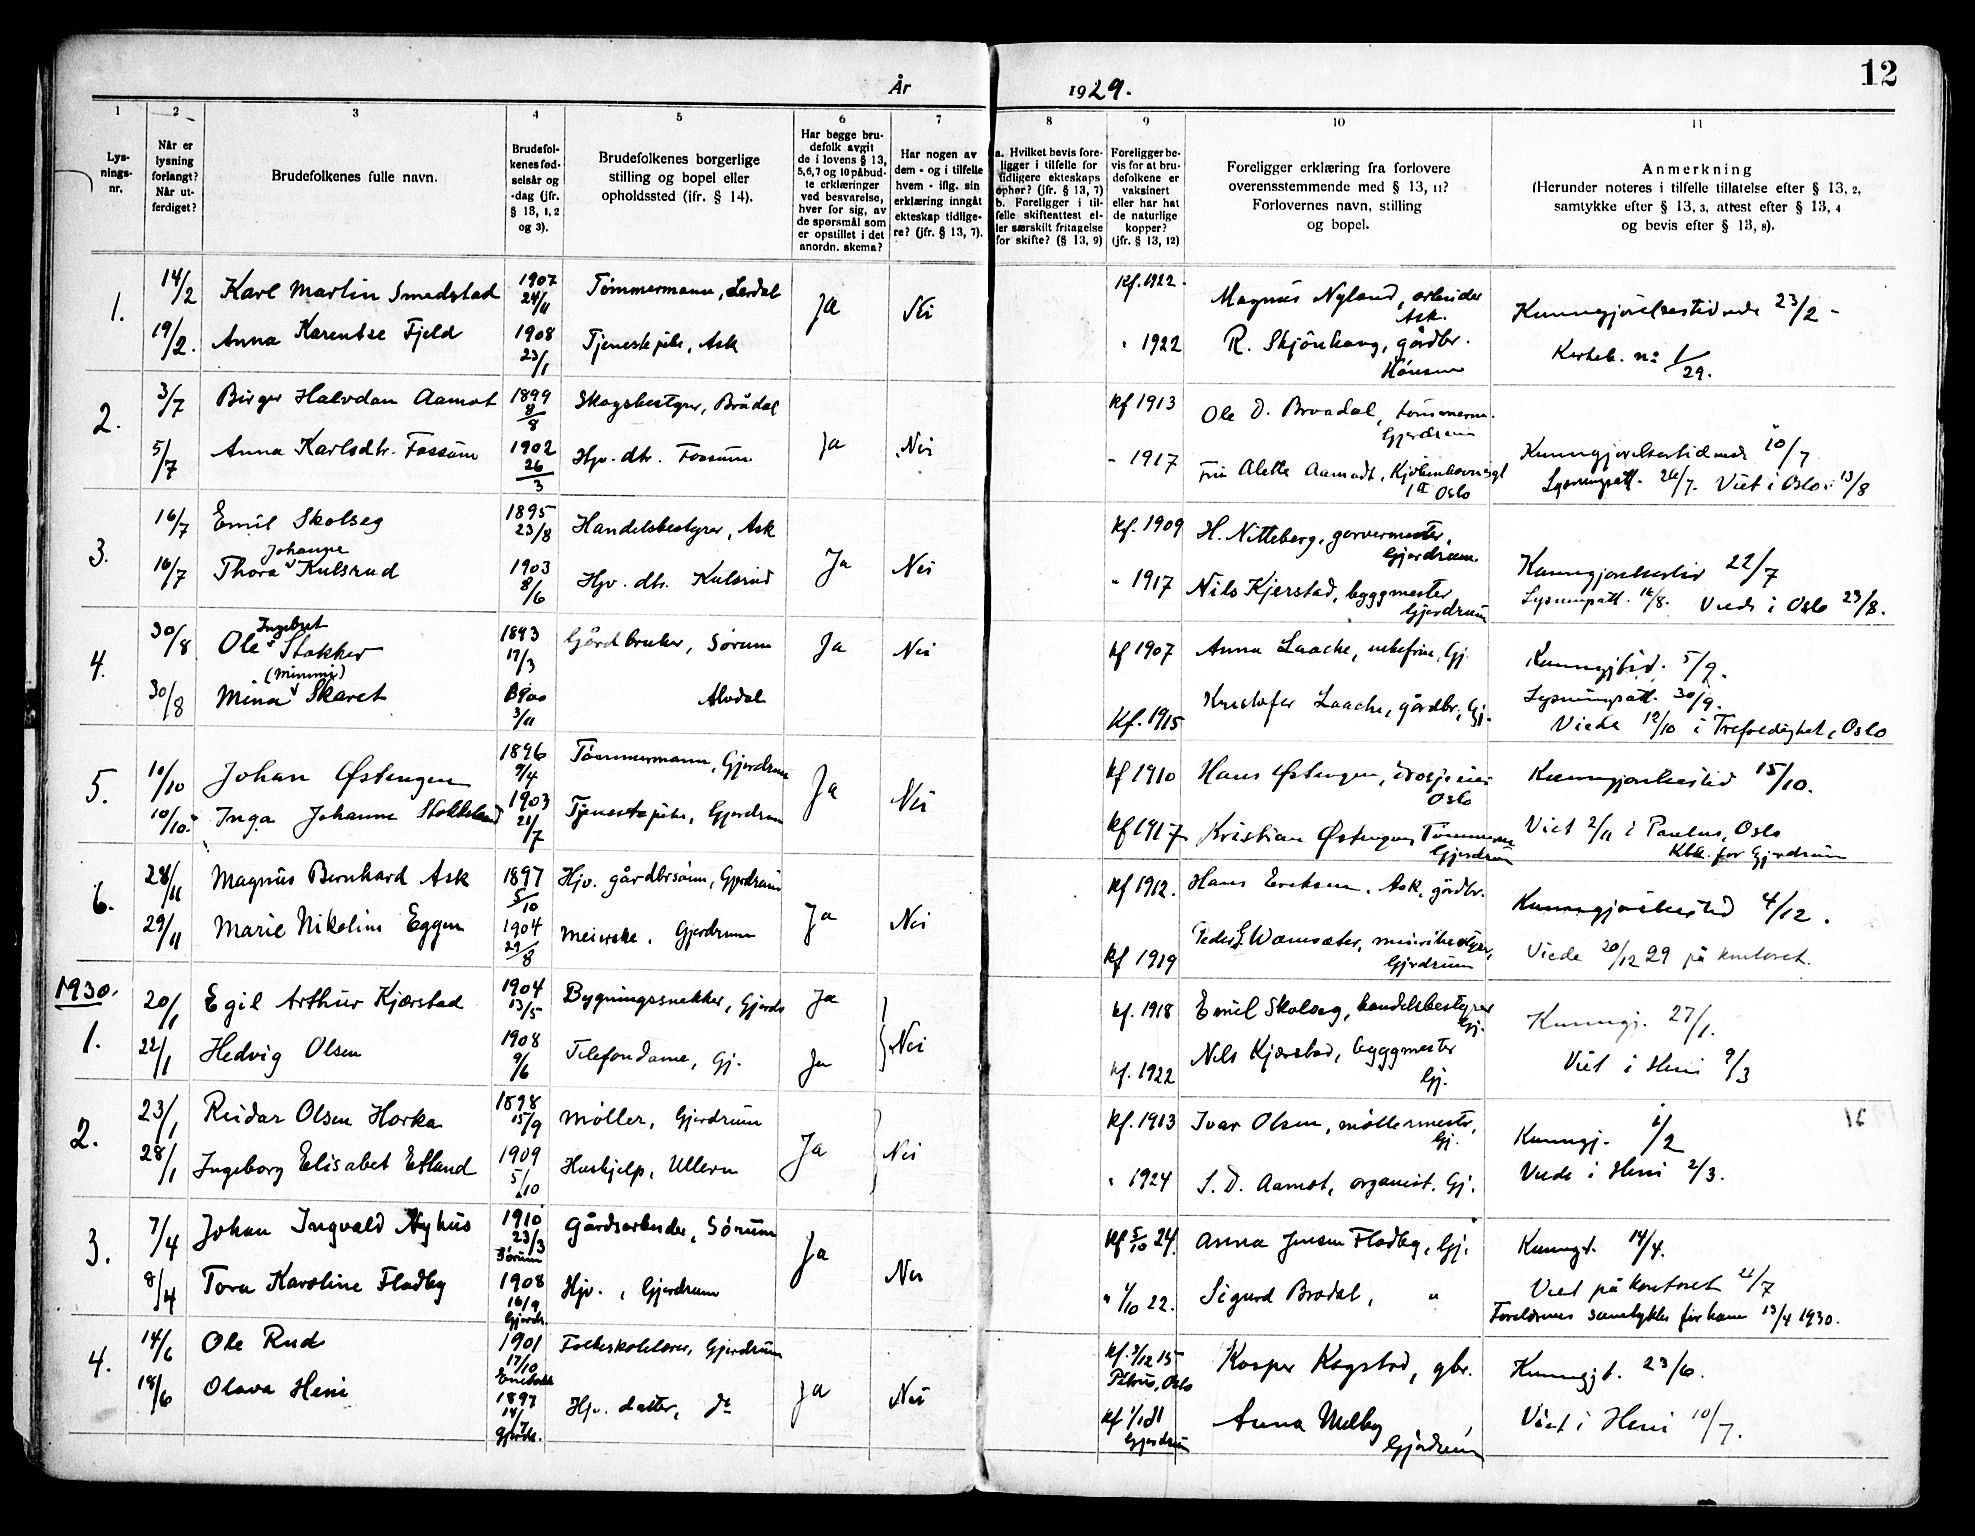 År 1929.
12
1 2 3 4 5 6 7 8 9 10 11
Lys-
nings-
nr.
Når er
lysning
forlangt?
Når ut-
ferdiget?
Brudefolkenes fulle navn.
Brudefol-
kenes fød-
selsår og
-dag (jfr.
§ 13, 1, 2
og 3).
Brudefolkenes borgerlige
stilling og bopel eller
opholdssted (ifr. § 14).
Har begge bru-
defolk avgit
de i lovens § 13,
5,6,7 og 10 påbud-
te erklæringer
ved besvarelse,
hver for sig, av
de spørsmål som
er opstillet i det
anordn. skema?
Har nogen av
dem - og i tilfelle
hvem - iflg. sin
erklæring inngåt
ekteskap tidlige-
re? (jfr. § 13, 7).
a. Hvilket bevis fore-
ligger i tilfelle for
tidligere ekteskaps
ophør? (jfr. § 13, 7)
b. Foreligger i til-
felle skifteattest el-
ler særskilt fritagelse
for skifte? (§ 13, 9)
Foreligger be-
vis for at bru-
defolkene er
vaksinert
eller har hat
de naturlige
kopper?
(jfr. § 13, 12)
Foreligger erklæring fra forlovere
overensstemmende med § 13, 11?
Forlovernes navn, stilling
og bopel.
Anmerkning
(Herunder noteres i tilfelle tillatelse efter § 13, 2,
samtykke efter § 13, 3, attest efter § 13, 4
og bevis efter § 13, 8).
1. 14/2 Karl Martin Smedstad 1907 24/11 Tømmermann, Lerdal Ja Nei Kf. 1922. Magnus Nyland, arbeider Ask. Kunngjørelsestidende 23/2 -
19/2. Anna Karentse Fjeld 1908 23/1 Tjenestepike, Ask " 1922 R. Skjönhaug, gårdbr. Hönsen Kirkeb. no 1/29.
2. 3/7 Birger Halvdan Aamot 1899 8/8 Skogsbestyrer, Brådal Ja Nei Kf 1913 Ole D. Braadal, tømmerm. Gjerdrum
5/7 Anna Karlsdtr. Fossum 1902 26/3 Hjv. dtr. Fossum - 1917 Fru Alette Aamodt, Kjøbenhavnsgt 1 II Oslo Kunngjørelsestidende 10/7
Lysningsatt. 26/7. Viet i Oslo 13/8
3. 16/7 Emil Skolseg 1895 23/8 Handelsbestyrer, Ask Ja Nei Kf. 1909 H. Nitteberg, garvermester, Gjerdrum.
16/7 Thora Johanne Kulsrud 1903 8/6 Hjv. dtr. Kulsrud " 1917 Nils Kjærstad, byggmester Gjerdrum Kunngjørelsestid 22/7
Lysningsatt. 16/8. Viede i Oslo 23/8.
4. 30/8 Ole Ingebret Stokker 1893 17/3 Gårdbruker, Sørum Ja Nei Kf 1907 Anna Laache, enkefrue, Gj. Kunngjtid. 5/9.
30/8 Mina (Minmi) Skaret 1900 3/11 Alvdal Kf. 1915 Kristofer Laache, gårdbr., Gj. Lysningsatt. 30/9.
Viede 12/10 i Trefoldighet, Oslo
5. 10/10 Johan Østengen 1896 9/4 Tømmermann, Gjerdrum Ja Nei Kf 1910 Hans Østengen, Oslo Kunngjørelsestid 15/10.
10/10. Inga Johanne Stokkeland 1903 21/7 Tjenestepike, Gjerdrum Kf 1917 Kristian Østengen, Tømmerm. Gjerdrum Viet 2/11 i Paulus, Oslo
Kbk. for Gjerdrum
6. 28/11 Magnus Bernhard Ask 1897 5/10 Hjv. gårdbrsønn, Gjerdrum Ja Nei Kf 1912. Hans Eriksen, Ask, gårdbr. Kunngjørelsestid 4/12.
29/11 Marie Nikoline Eggen 1904 29/8 Meierske, Gjerdrum Kf 1919 Peder E. Wamsæter, meieribestyrer, Gjerdrum Viede 20/12 29 på kontoret.
1930.
1. 20/1 Egil Arthur Kjærstad 1904 13/5 Bygningssnekker, Gjerdr. Ja Nei Kf. 1918 Emil Skolseg, handelsbestyrer Gj. Kunngj. 27/1.
22/1 Hedvig Olsen 1908 9/6 Telefondame, Gj. Ja Kf. 1922 Nils Kjærstad, byggmester Gj. Viet i Heni 9/3
2. 23/1 Reidar Olsen Horka 1898 15/9 Møller, Gjerdrum Ja Nei Kf. 1913 Ivar Olsen, møllermester, Gj. Kunngj. 1/2 16
28/1 Ingeborg Elisabet Efland 1909 5/10 Hushjelp, Ullern " 1924 S. D. Aamot, organist. Gj. Viede i Heni 2/3.
3. 7/4 Johan Ingvald Nyhus 1910 23/3 Sørum Gårdsarbeider, Sørum Ja Nei Kf 5/10 24. Anna Jensen Fladby, Gj. Kunngt. 14/4.
8/4 Tora Karoline Fladby 1908 16/9 Gjerdr. Hjv., Gjerdrum " 1/10 22. Sigurd Brodal, " Viet på kontoret 21/7
Foreldrenes samtykke for ham 13/4 1930.
4. 14/6 Ole Rud 1901 17/10 Enebakk Folkeskolelærer, Gjerdrum Ja Nei Kf. 5/12 15 Petrus, Oslo Kasper Kogstad, gbr. Kunngjt. 23/6.
18/6 Olava Heni 1897 14/7 Gjerdr. Hjv. datter, do Kf 1/10 11 Gjerdrum Anna Melby Gjerdrum Viet i Heni 10/7.